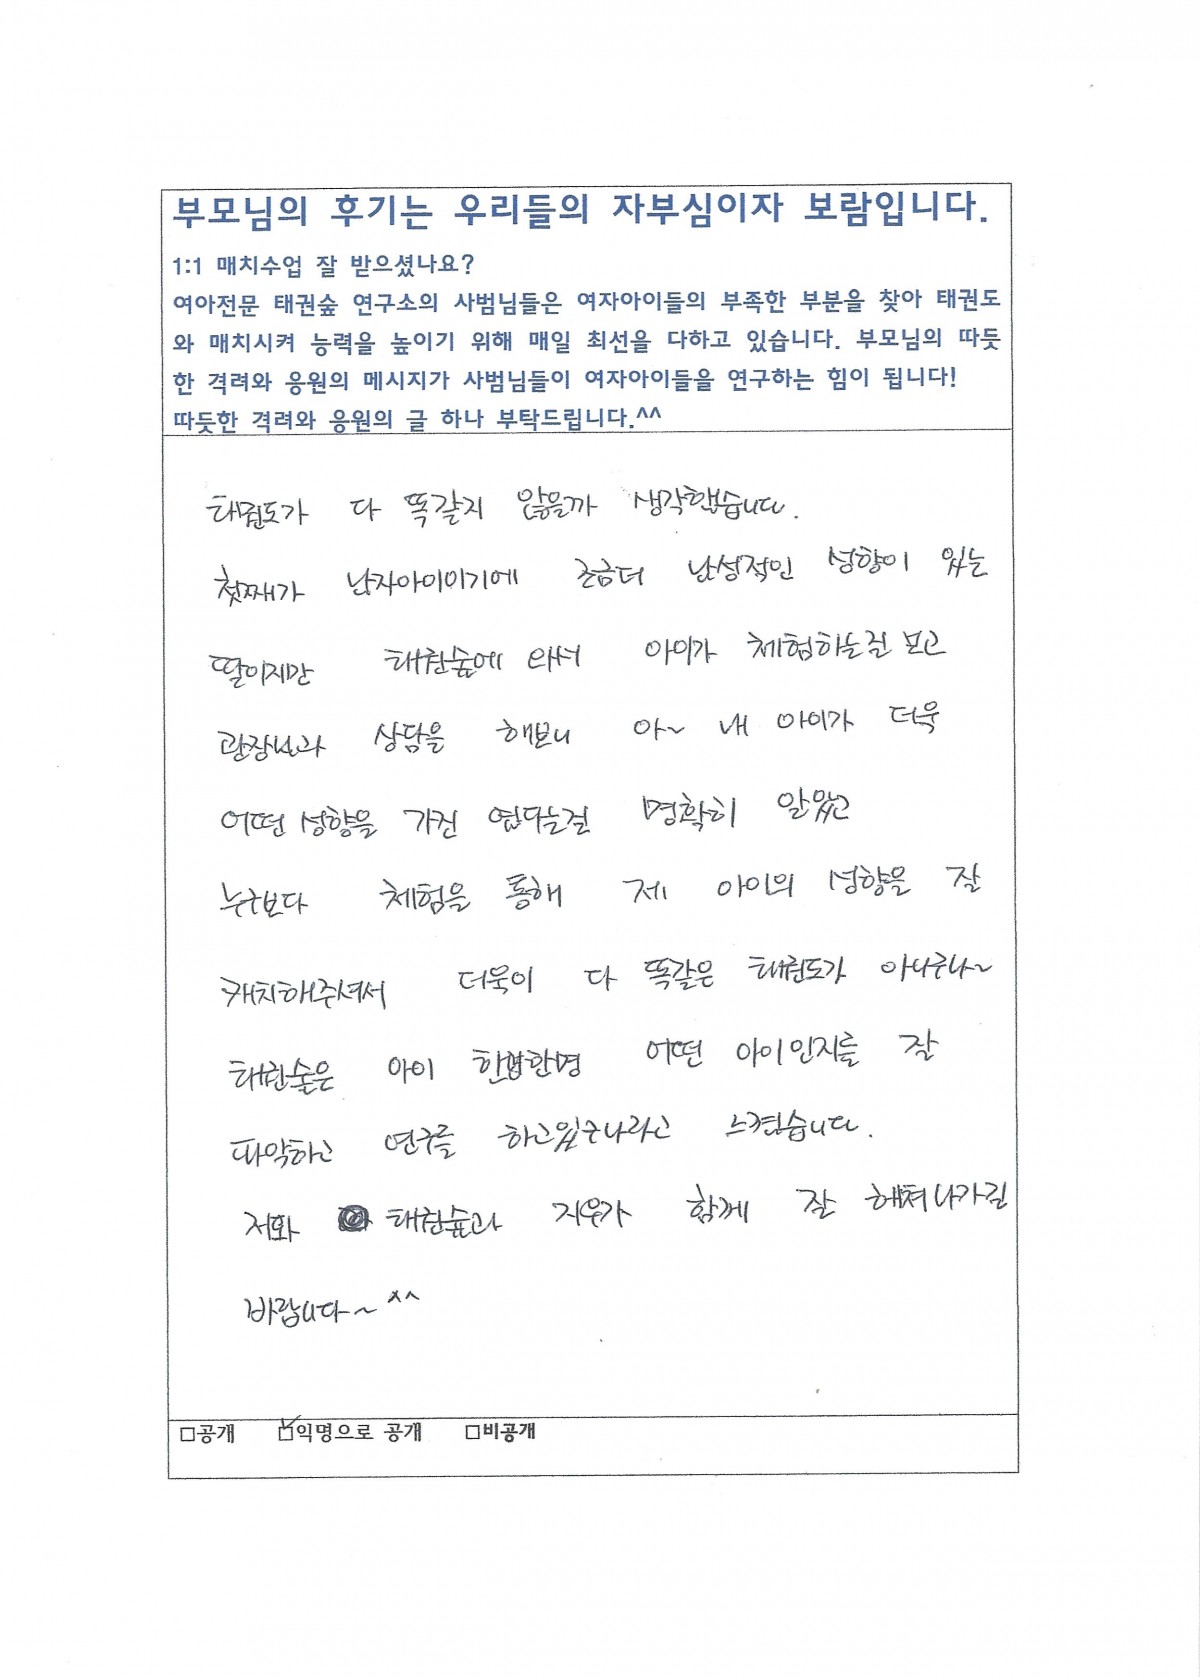 부모님의 후기는 우리들의 자부심이자 보람입니다.
1:1 매치수업 잘 받으셨나요?
여아전문 태권숲 연구소의 사범님들은 여자아이들의 부족한 부분을 찾아 태권도
와 매치시켜 능력을 높이기 위해 매일 최선을 다하고 있습니다. 부모님의 따듯
한 격려와 응원의 메시지가 사범님들이 여자아이들을 연구하는 힘이 됩니다!
따듯한 격려와 응원의 글 하나 부탁드립니다.^^
태권도가 다 똑같지 않을까 생각했습니다.
첫째가 남자아이이기에 조금더 남성적인 성향이 있는
딸이지만 태권숲에 와서 아이가 체험하는걸 보고
관장님과 상담을 해보니 아~ 내 아이가 더욱
어떤 성향을 가진 명확히 알았고
누구보다 체험을 통해 제 아이의 성향을 잘
캐치해주셔서 더욱이 다 똑같은 태권도가 아니구나~
태권숲은 아이 한명한명 어떤 아이인지를 잘
파악하고 연구를 하고있구나라고 느꼈습니다.
저와 태권숲과 지우가 함께 잘 헤쳐나가길
바랍니다~ ^^
□공개 ☑익명으로 공개 □비공개